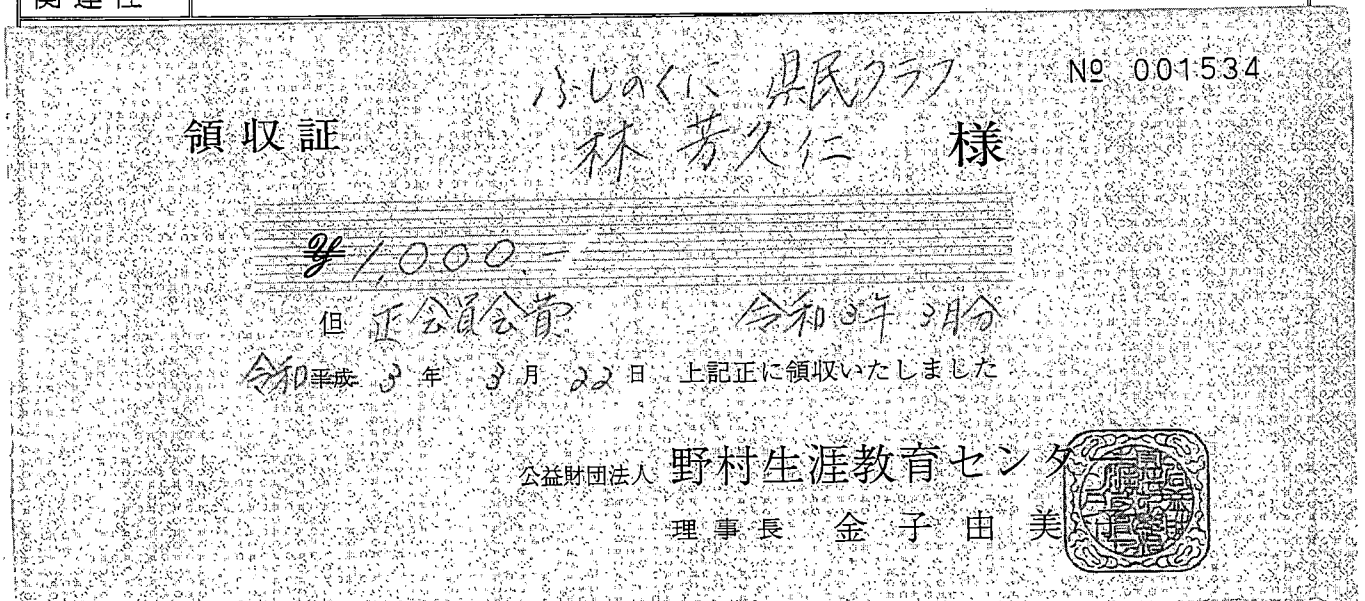 関連性
ふじのくに 県民クラブ
№ 001534
領収証
林 芳久仁 様
¥1,000.-
但 正会員会費 令和3年3月分
令和平成 3年 3月 22日 上記正に領収いたしました
公益財団法人 野村生涯教育センター
理事長 金子由美子